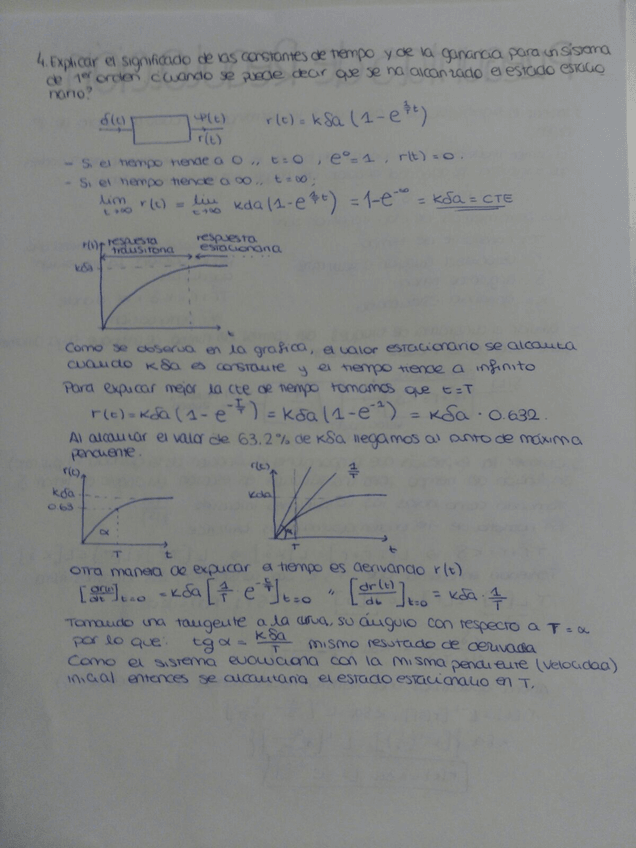 4. Explicar el significado de las constantes de tiempo y de la ganancia para un sistema
de 1er orden ¿cuando se puede decir que se ha alcanzado el estado estacio
nario?
δ(t) ψ(t) r(t) = kδa (1 - e^{t/T})
r(t)
- Si el tiempo tiende a 0 .. t=0 , e^0 = 1 , r(t) = 0.
- Si el tiempo tiende a ∞ .. t=∞ ;
lim t→∞ r(t) = lim t→∞ kda (1 - e^{t/T}) = 1 - e^{-∞} = kδa = CTE
r(t) respuesta transitoria respuesta estacionaria
kδa
t
Como se observa en la grafica, el valor estacionario se alcanza
cuando kδa es constante y el tiempo tiende a infinito
Para explicar mejor la cte de tiempo tomamos que t=T
r(t) = kδa (1 - e^{-T/T}) = kδa (1 - e^{-1}) = kδa · 0.632.
Al alcanzar el valor de 63.2% de kδa llegamos al de máxima
pendiente.
r(t) r(t) 1/T
kδa kda
0.63
α α
T t T t
Otra manera de explicar el tiempo es derivando r(t)
[dr(t)/dt]t=0 = kδa [1/T · e^{-t/T}]t=0 " [dr(t)/dt]t=0 = kδa · 1/T
Tomando una tangente a la curva, su ángulo con respecto a T = α
por lo que: tg α = kδa/T mismo resultado de derivada
Como el sistema evoluciona con la misma pendiente (velocidad)
inicial entonces se alcanzaria el estado estacionario en T.